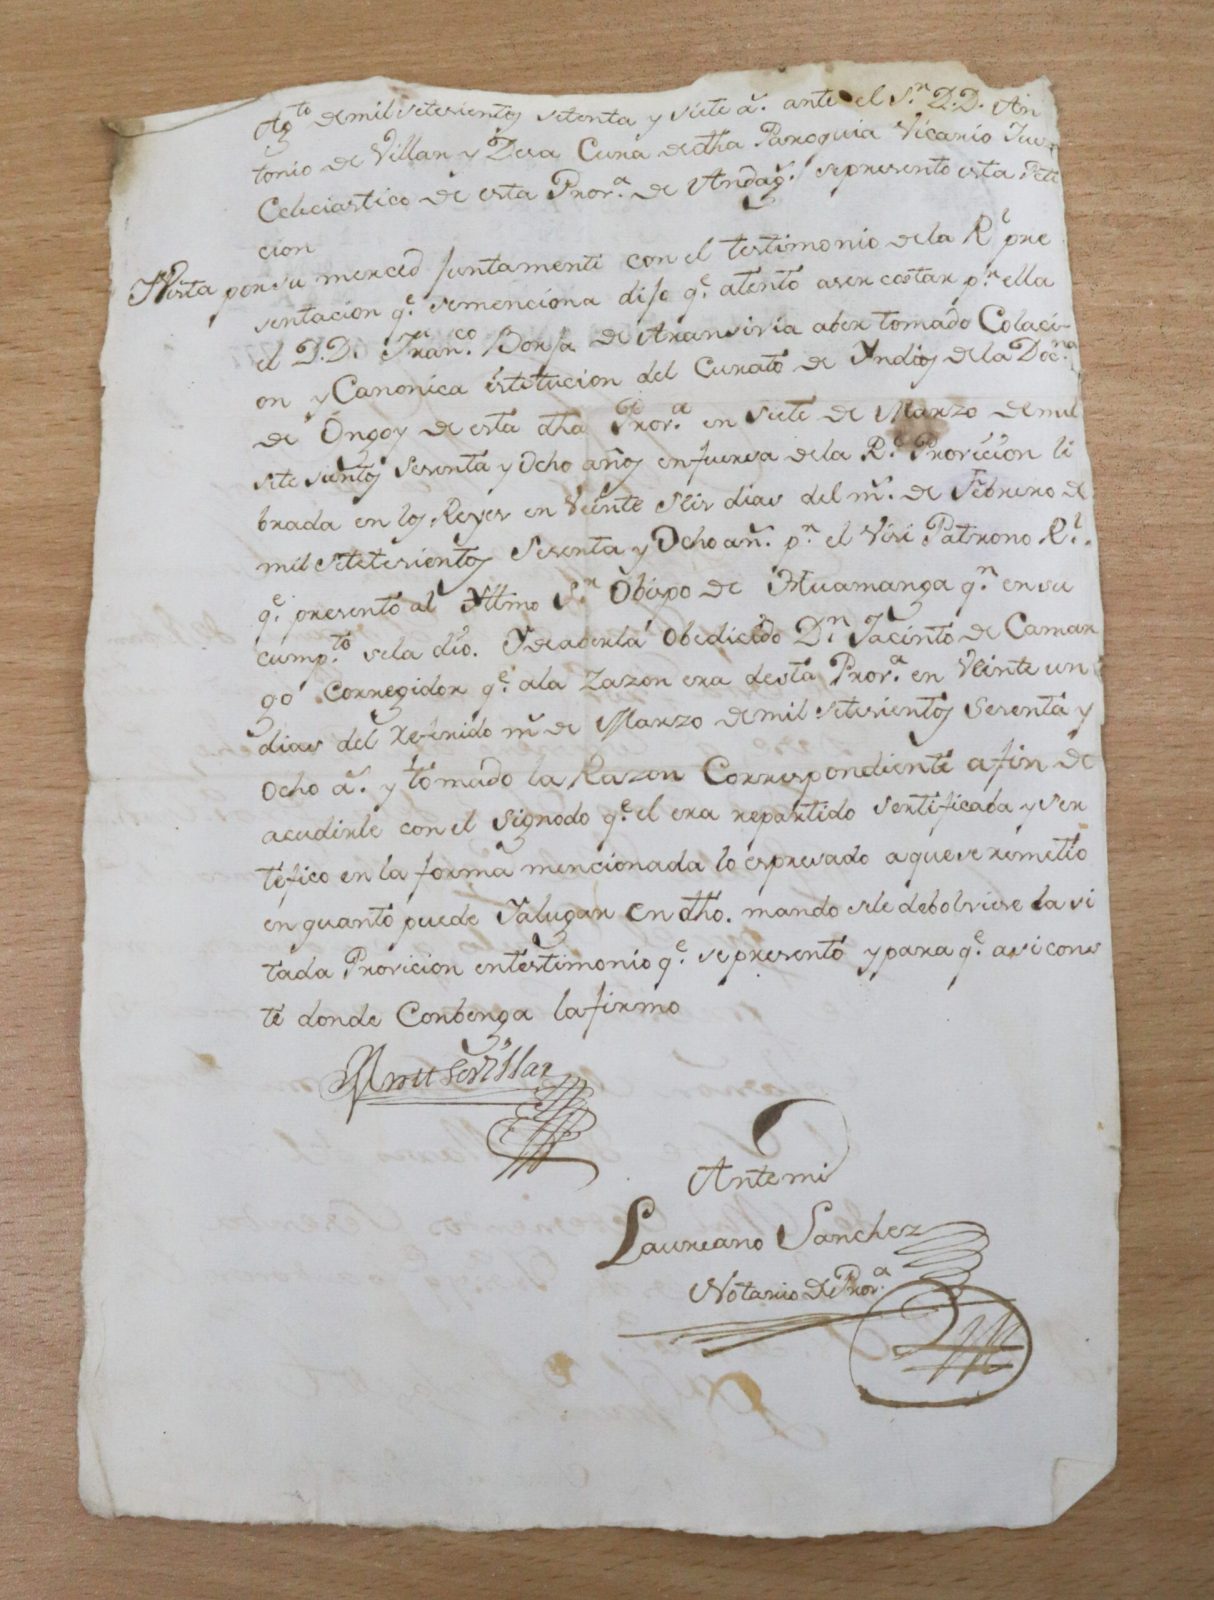 Agto de mil setesientos setenta y siete as. ante el Sr. D.D. An
tonio de Villar y Desa Cura de dha Parroquia Vicario Juez
Eclesiastico de esta Prova. de Andags. se presento esta Peti
cion
Vista por su merced juntamente con el testimonio de la Rl pre
sentacion qe. se menciona dijo qe. atento aser costar pr. ella
el D.D. Franco. Borja de Aransivia aber tomado Colaci-
on y Canonica istitucion del Curato de Yndios de la Docna.
de Ongoy de esta dha Prova. en siete de Marzo de mil
sete sientos sesenta y Ocho años en fuersa de la Rl Provicion li
brada en los Reyes en Veinte Seis dias del ms. de Febrero de
mil setesientos Sesenta y Ocho añs. pr. el Visi Patrono Rl.
qe. presento al Yltmo Sr Obispo de Huamanga qn. en su
cumpto. se la dio. Y de aberla Obedicido Dn Jacinto de Camar
go Corregidor qe. ala Zazon era desta Prova. en Veinte un
dias del referido ms de Marzo de mil setesientos Sesenta y
Ocho as. y tomado la Razon Correspondiente a fin de
acudirle con el Signodo qe. el era repartido sertificaba y ser
tefico en la forma mencionada lo espresado a que se remetio
en quanto puede Ialugar en dho. mando sele debolviese la si
tada Provicion en testimonio qe. se presento y para qe. asi cons
te donde Conbenga lafirmo
Antemi
Laureano Sanchez
Notario de Prova.